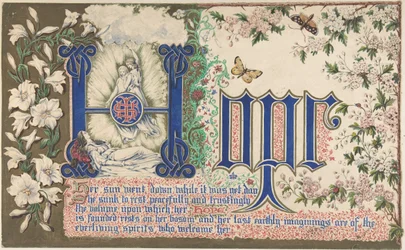 Hope
Her sun went down while it was yet day
She sunk to rest peacefully and trustingly
the volume upon which her HOPE
is founded rests on her bosom and her last earthly imaginings are of the
everliving spirits who welcome her